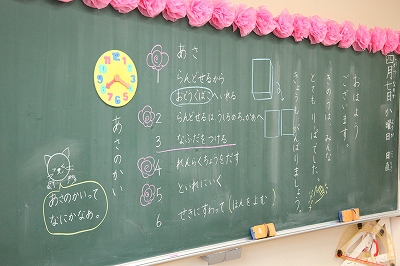 四月七日 か曜日 日直
おはよう
ございます。
きのうは みんな
とても りっぱでした。
きょうも がんばりましょう。
あさ
らんどせるから
おどうぐばこへいれる
2 らんどせるは、うしろのろっかあへ
3 なふだをつける
4 れんらくちょうをだす
5 といれにいく
6 せきにすわって(ほんをよむ)
あさのかい
あさのかいって
なにかなあ。